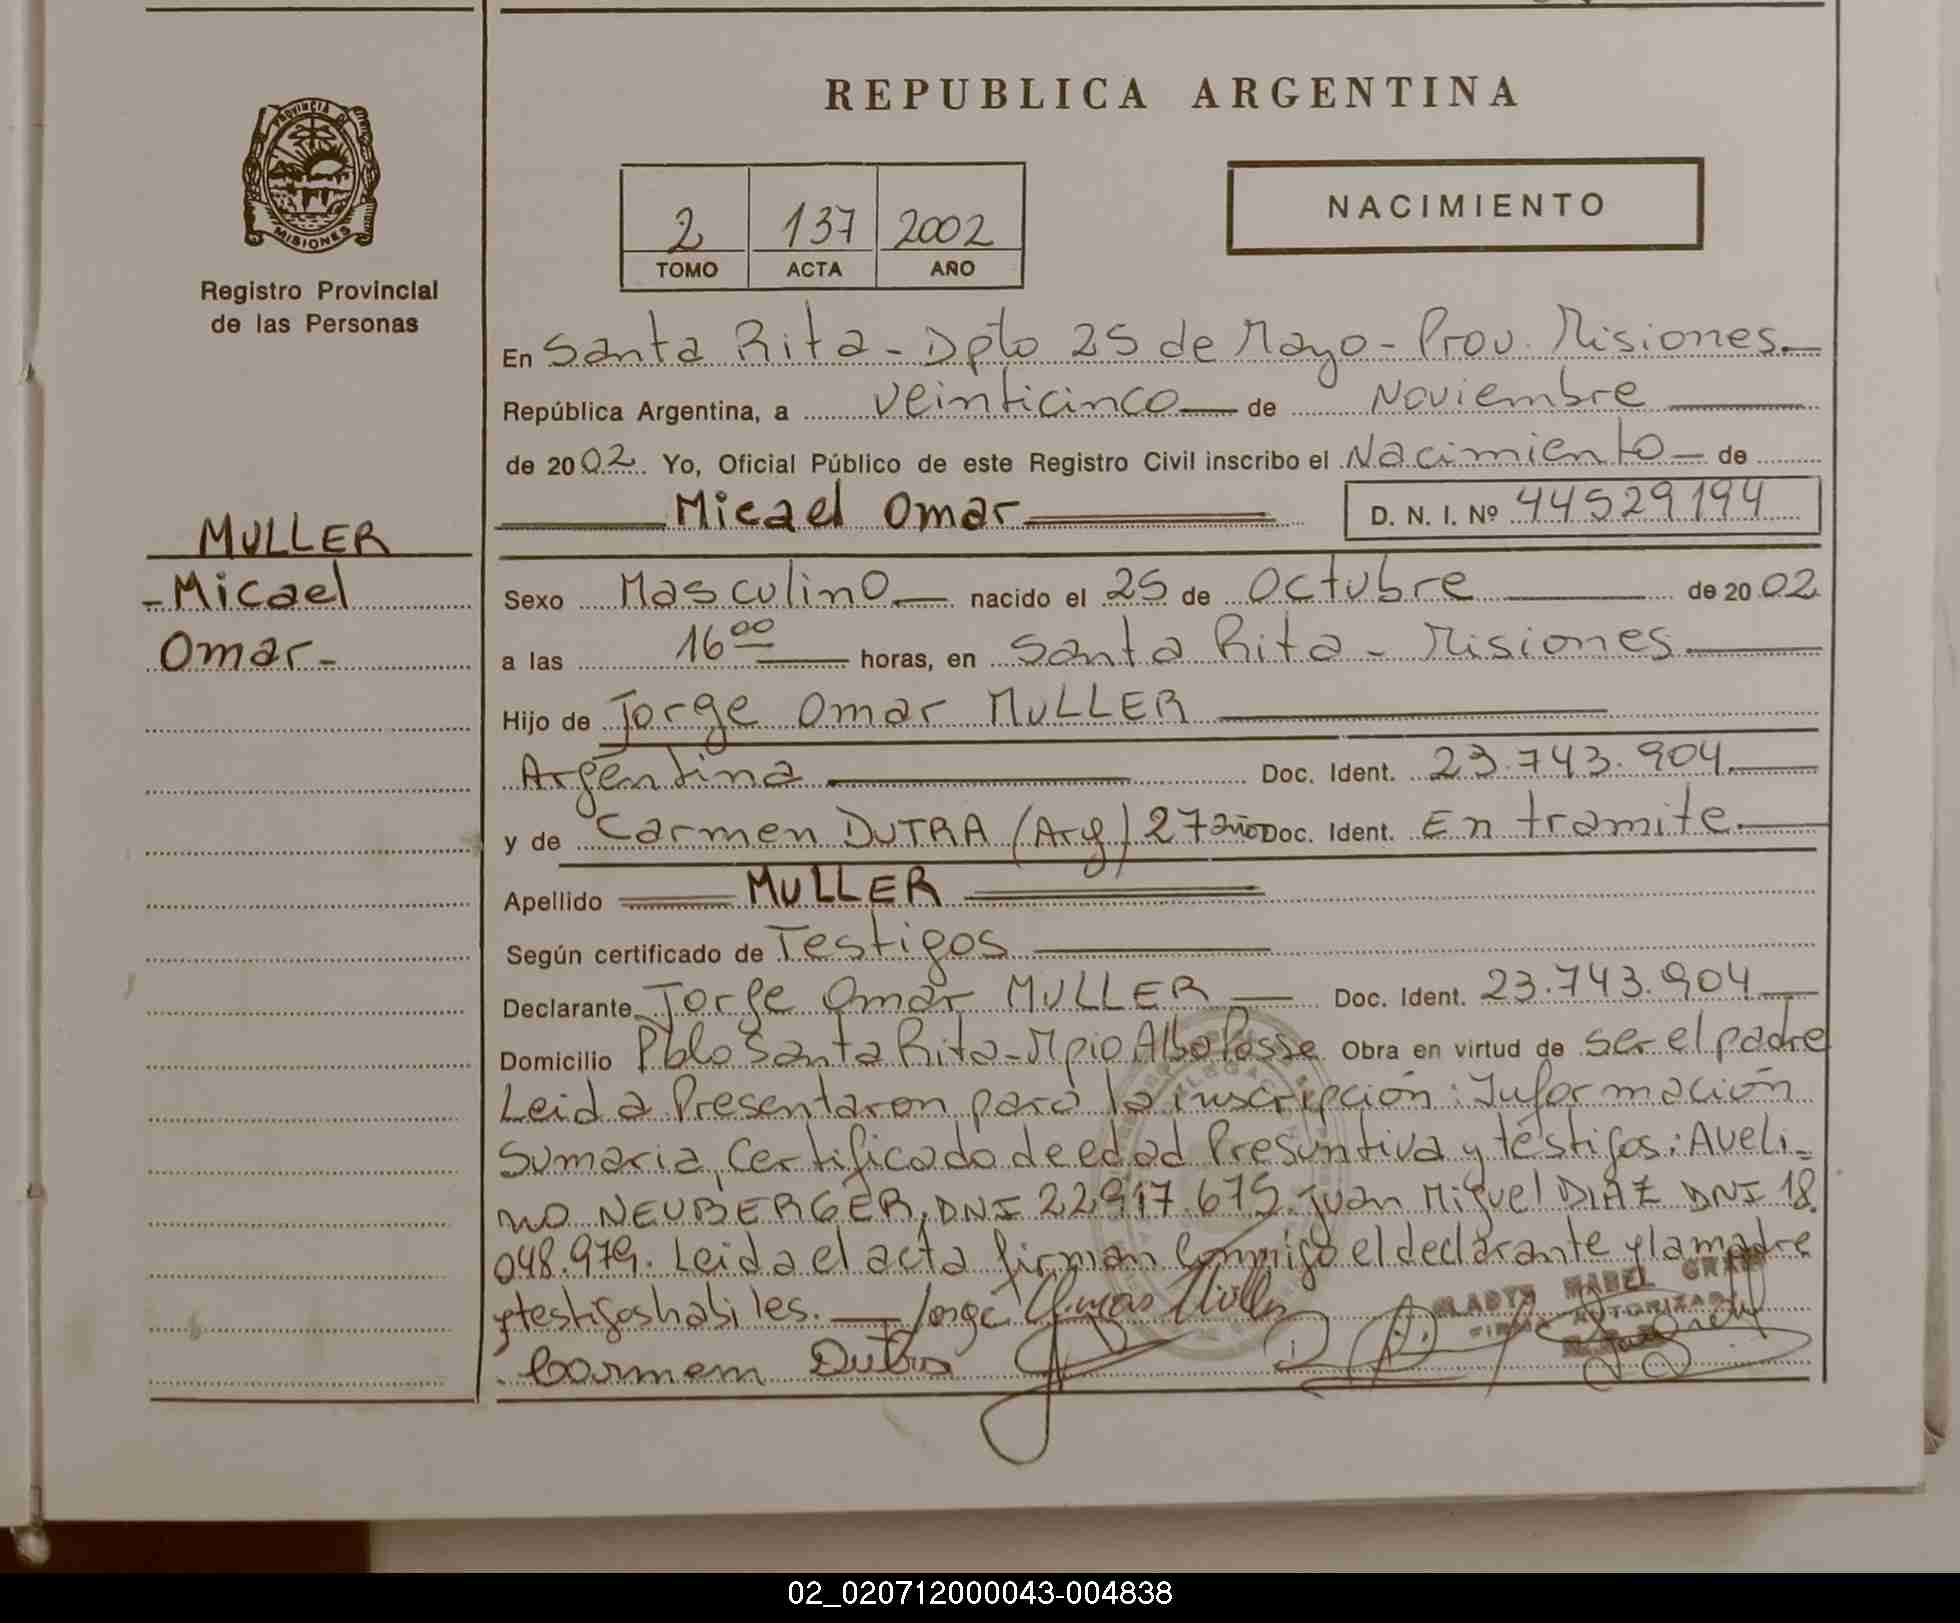 REPUBLICA ARGENTINA
PROVINCIA DE
MISIONES
Registro Provincial
de las Personas
2 137 2002
TOMO ACTA AÑO
NACIMIENTO
En Santa Rita - Dpto 25 de Mayo - Prov. Misiones.
República Argentina, a veinticinco de Noviembre
de 2002. Yo, Oficial Público de este Registro Civil inscribo el Nacimiento de
Micael Omar D. N. I. Nº 44529194
MULLER
- Micael
Omar -
Sexo Masculino nacido el 25 de Octubre de 2002
a las 16 00 horas, en Santa Rita - Misiones
Hijo de Jorge Omar MULLER
Argentina Doc. Ident. 23.743.904
y de Carmen DUTRA (Arg) 27 año Doc. Ident. En tramite
Apellido MULLER
Según certificado de Testigos
Declarante Jorge Omar MULLER Doc. Ident. 23.743.904
Domicilio Pblo Santa Rita - Mpio Alba Posse Obra en virtud de ser el padre
Leida Presentaron para la inscripción: Información
Sumaria, Certificado de edad Presuntiva y testigos: Aveli-
no NEUBERGER, DNI 22917.675. Juan Miguel DIAZ DNI 18.
048.979. Leida el acta firman conmigo el declarante y la madre
y testigos habiles. Jorge Muller
GLADYS MABEL
FIRMA AUTORIZADA
Carmem Dutra
02_020712000043-004838